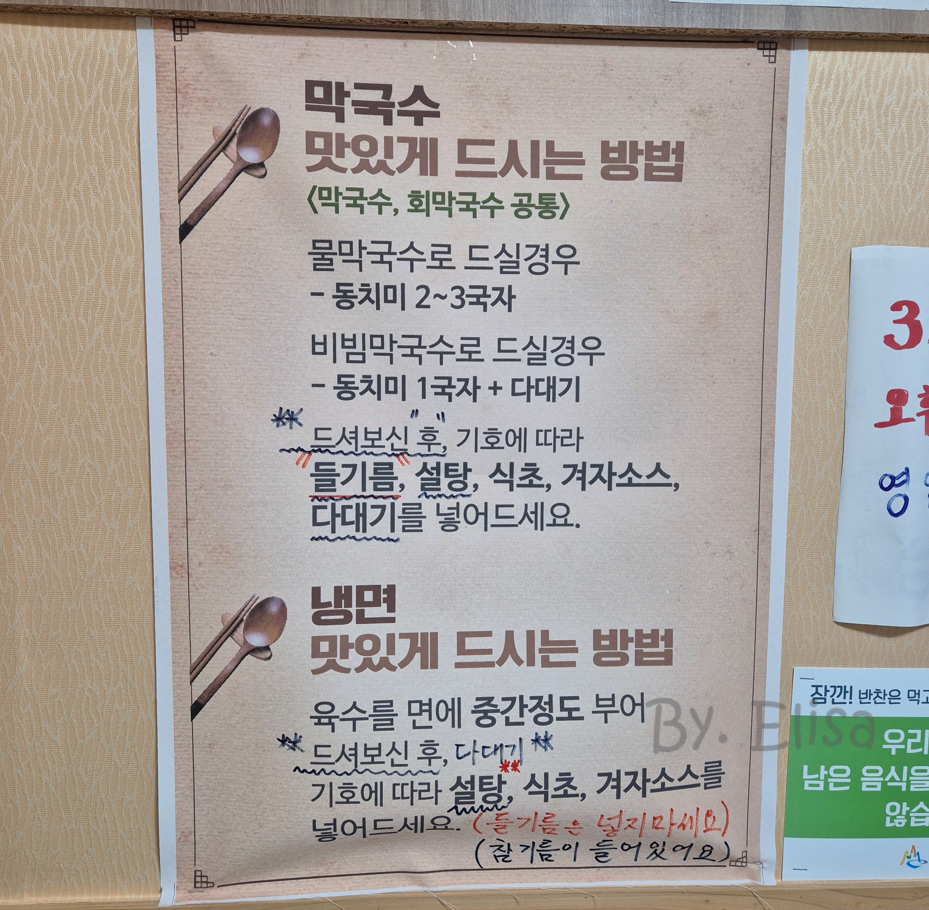 막국수
맛있게 드시는 방법
<막국수, 회막국수 공통>
물막국수로 드실경우
- 동치미 2~3국자
비빔막국수로 드실경우
- 동치미 1국자 + 다대기
** 드셔보신 "후", 기호에 따라
"들기름", 설탕, 식초, 겨자소스,
다대기를 넣어드세요.
냉면
맛있게 드시는 방법
육수를 면에 중간정도 부어
** 드셔보신 후, 다대기 **
기호에 따라 설탕**, 식초, 겨자소스를
넣어드세요. (들기름은 넣지마세요)
(참기름이 들어있어요)
By. Elisa
3
영
잠깐! 반찬은 먹고
우리
남은 음식을
않습